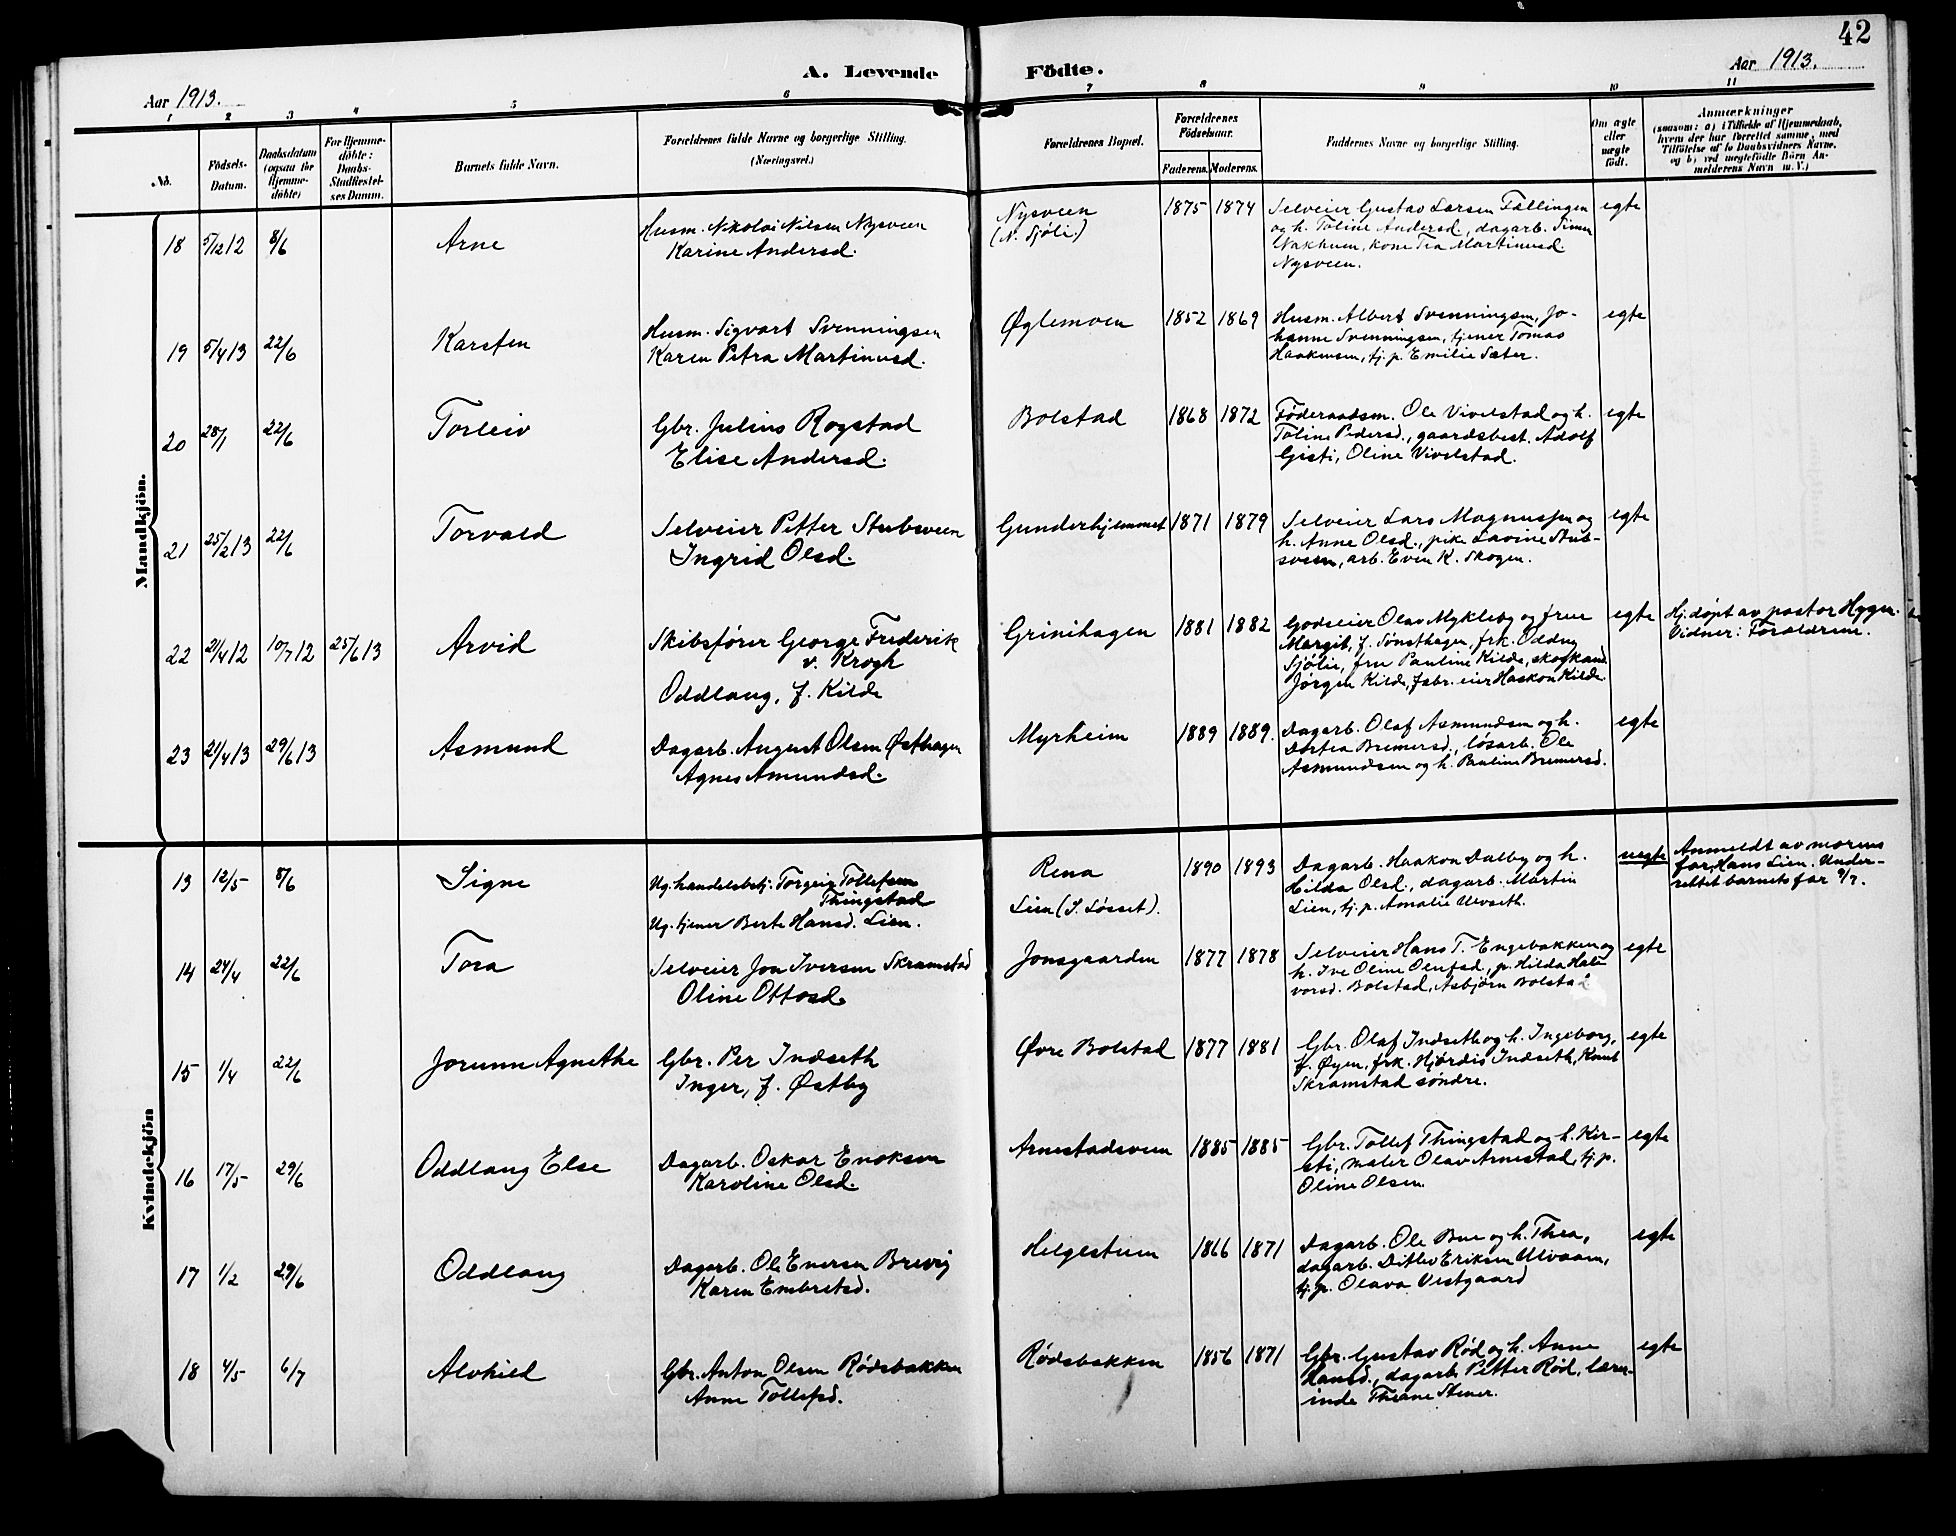 42
A. Levende Födte.
Aar 1913.
Aar 1913.
1 2 3 4 5 6 7 8 9 10 11
No.
Födsels-Datum.
Daabsdatum (ogsaa for Hjemme-döbte)
For Hjemme-döbte: Daabs-Stadfæstel-ses Datum.
Barnets fulde Navn.
Forældrenes fulde Navne og borgerlige Stilling. (Næringsvei.)
Forældrenes Bopæl.
Forældrenes Födselsaar.
Faderens. Moderens.
Faddernes Navne og borgerlige Stilling.
Om ægte eller uægte födt.
Anmærkninger
(saasom: a) i Tilfælde af Hjemmedaab,
hvem der har forrettet samme, med
Tilföielse af to Daabsvidners Navne,
og b) ved uægtefödte Börn An-
melderens Navn m. V.)
Mandkjön.
18 5/12 12 8/6 Arne
Husm. Nikolai Nilsen Nysveen
Karine Andersd.
Nysveen
(N. Sjöli.)
1875 1874
Selveier Gustav Larsen Fallingen
og h. Toline Andersd., dagarb. Simen
Nakhuen, kone Tea Martinusd.
Nysveen.
egte
19 5/4 13 22/6 Karsten
Husm. Sigvart Svenningsen
Karen Petra Martinusd.
Øglemoen
1852 1869
Husm. Albert Svenningsen, Jo-
hanne Svenningsen, tjener Tomas
Haakensen, tj. p. Emilie Sæter.
egte
20 28/1 22/6 Torleiv
Gbr. Julius Rogstad
Elise Andersd.
Bolstad
1868 1872
Føderaadsm. Ole Vivelstad og h.
Toline Pedersd., gaardsbest. Adolf
Gisti, Oline Vivelstad.
egte
21 25/2 13 22/6 Torvald
Selveier Petter Stubsveen
Ingrid Olsd.
Gunderhjemmet
1871 1879
Selveier Lars Magnussen og
h. Anne Olsd., pike Lavine Stub-
sveen, arb. Even K. Skogen.
egte
22 21/4 12 10/7 12 25/6 13 Arvid
Skibsfører George Frederik
v. Krogh
Oddlaug, f. Kilde
Grinihagen
1881 1882
Godseier Olav Mykleby og frue
Margit, f. Sønsthagen, frk. Oddny
Sjølie, fru Pauline Kilde, skogkand.
Jørgen Kilde, fabr. eier Haakon Kilde.
egte
Hj. døpt av pastor Hygen.
Vidner: Forældrene.
23 21/4 13 29/6 13 Asmund
Dagarb. August Olsen Østhagen
Agnes Amundsd.
Myrheim
1889 1889.
Dagarb. Olaf Asmundsen og h.
Dortea Bremersd., løsarb. Ole
Asmundsen og h. Pauline Bremersd.
egte
Kvindekjön
13 12/5 8/6 Signe
Ug. handelsbetj. Torgeir Tollefsen
Thingstad
Ug. tjener Berte Hansd. Lien.
Rena
Lien (S. Løsset).
1890 1893
Dagarb. Haakon Dalby og h.
Hilda Olsd., dagarb. Martin
Lien, tj. p. Amalie Ulvseth.
uegte
Anmeldt av morens
far, Hans Lien. Under-
rettet barnets far 9/7.
14 24/4 22/6 Tora
Selveier Jon Iversen Skramstad
Oline Ottosd.
Jonsgaarden
1877 1878
Selveier Hans T. Engebakken og
h. Ive Oline Olufsd., p. Hilda Hal-
vorsd. Bolstad, Asbjörn Bolstad
egte
15 1/4 22/6 Jorunn Agnethe
Gbr. Per Indseth
Inger, f. Østby
Øvre Bolstad
1877 1881
Gbr. Olaf Indseth og h. Ingeborg,
f. Øyen, frk. Hjørdis Indseth, Knut
Skramstad søndre.
egte
16 17/5 29/6 Oddlaug Else
Dagarb. Oskar Enoksen
Karoline Olsd.
Arnestadsveen
1885 1885
Gbr. Tollef Thingstad og h. Kir-
sti, maler Olav Arnestad, tj. p.
Oline Olsen.
egte
17 1/2 29/6 Oddlaug
Dagarb. Ole Evensen Brevig
Karen Embretsd.
Helgestuen
1866 1871
Dagarb. Ole Bue og h. Thea,
dagarb. Ditlev Eriksen Ulvaaen,
tj. p. Olava Vestgaard
egte
18 4/5 6/7 Alvhild
Gbr. Anton Olsen Rødsbakken
Anne Tollefsd.
Rødsbakken
1856 1871
Gbr. Gustav Rød og h. Anne
Hansd., dagarb. Petter Rød, lærer-
inde Theane Stener.
egte